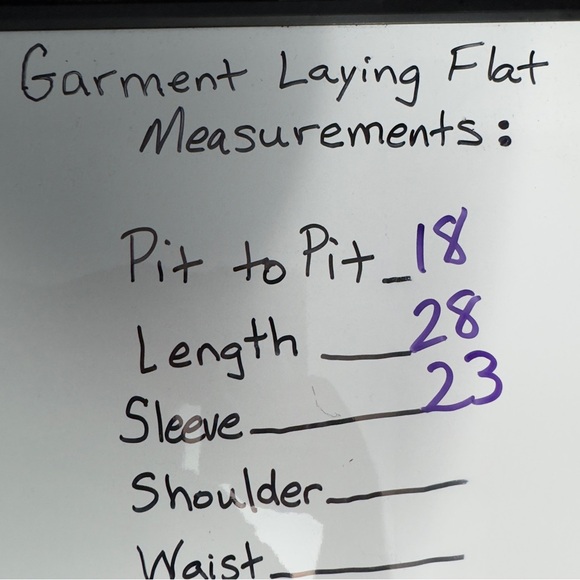 Garment Laying Flat
Measurements:
Pit to Pit_18
Length ___28
Sleeve______23
Shoulder_____
Waist______